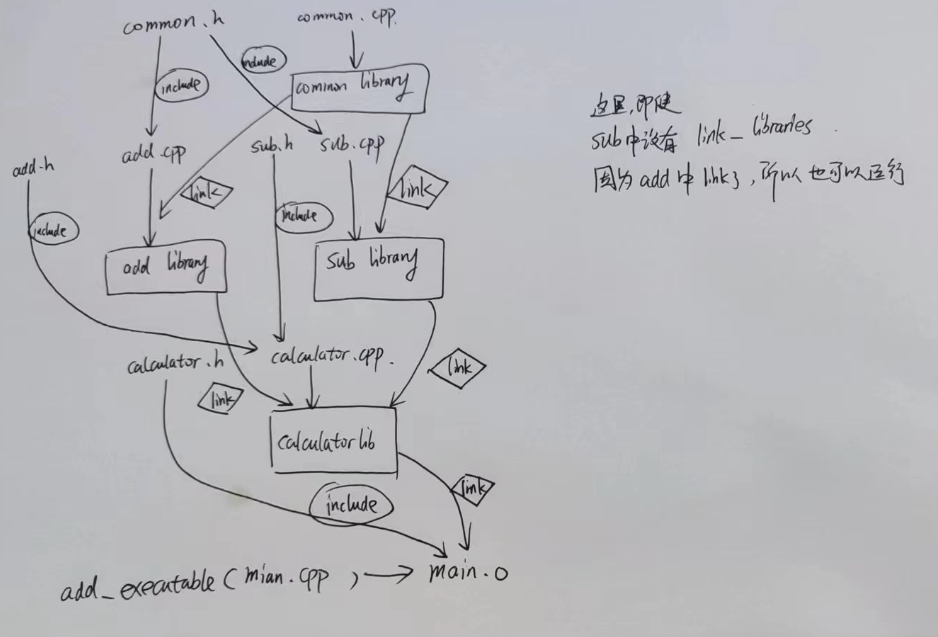 common.h common.cpp
include
include
common library
add.h add.cpp sub.h sub.cpp
link
link
include
include
add library
sub library
calculator.h calculator.cpp.
link
link
calculator lib
include
link
add_executable(mian.cpp) → main.o
这里,即使
sub中没有 link_libraries.
因为add中link了,所以也可以运行